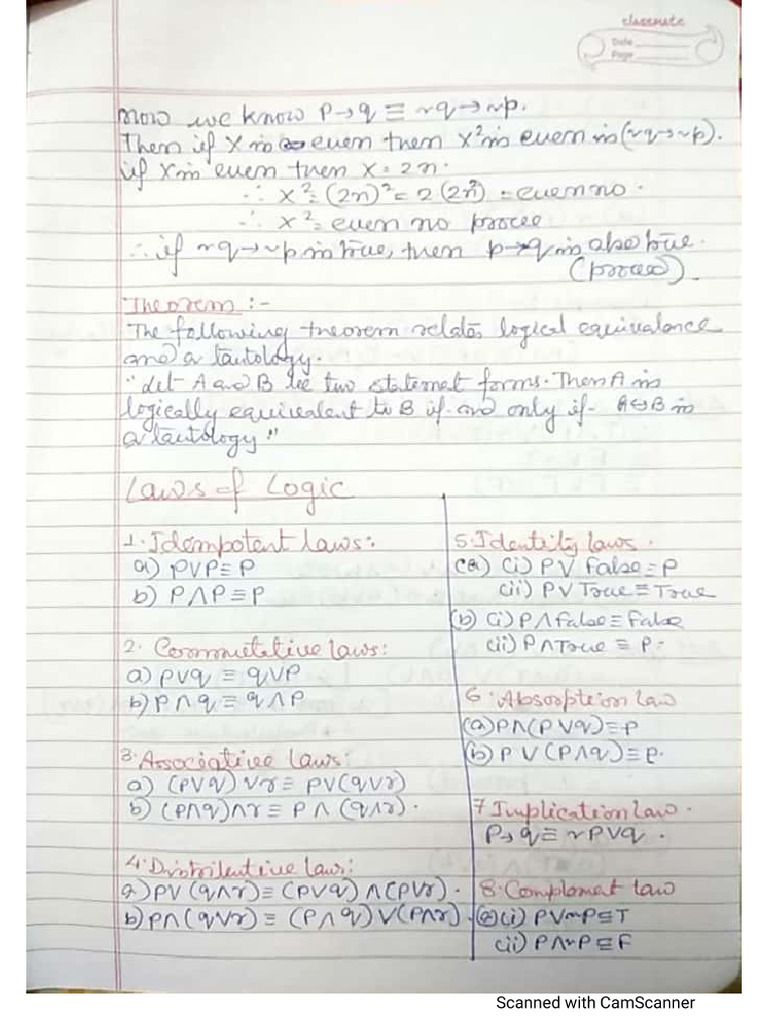 classmate
Date
Page
Now we know P→q ≡ ~q→~p.
Then if X is even then X² is even is (~q→~p).
if X is even then X = 2n.
∴ X² = (2n)² = 2(2n²) = even no.
∴ X² = even no proved
∴ if ~q→~p is true, then p→q is also true.
(proved).
Theorem :-
The following theorem relates logical equivalence
and a tautology.
"Let A and B be two statemet forms. Then A is
logically equivalent to B if and only if A↔B is
a tautology."
Laws of Logic
1. Idempotent laws:
a) PVP ≡ P
b) P∧P ≡ P
2. Commutative laws:
a) pvq ≡ qvp
b) P∧q ≡ q∧P
3. Associative laws:
a) (PVq) Vr ≡ PV(qVr)
b) (P∧q)∧r ≡ P∧(q∧r).
4. Distributive laws:
a) PV(q∧r) ≡ (PVq)∧(PVr).
b) P∧(qVr) ≡ (P∧q)V(P∧r).
5. Identity laws.
(a) (i) PV False ≡ P
(ii) PV True ≡ True
(b) (i) P∧False ≡ False
(ii) P∧True ≡ P.
6. Absorption law
(a) P∧(PVq) ≡ P
(b) PV(P∧q) ≡ P.
7 Implication law.
P→q ≡ ~PVq.
8. Complemet law
(a) (i) PV~P ≡ T
(ii) P∧~P ≡ F
Scanned with CamScanner